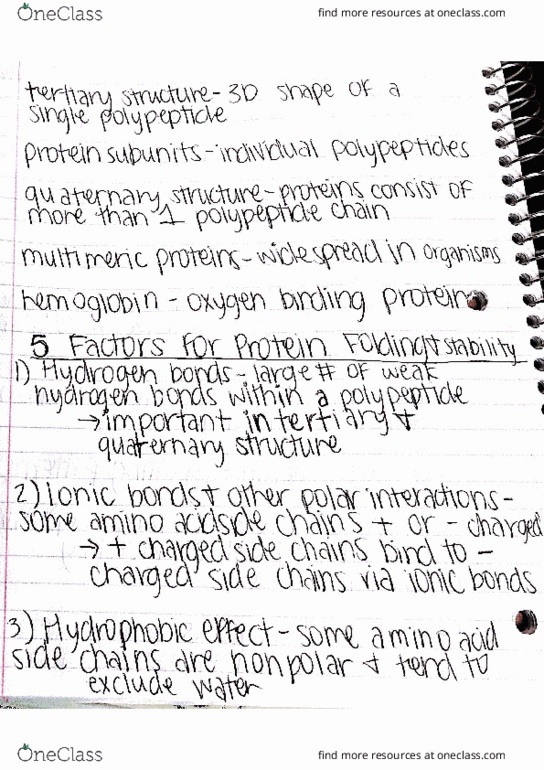 OneClass
find more resources at oneclass.com
tertiary structure- 3D shape of a
single polypeptide
protein subunits-individual polypeptides
quaternary structure-proteins consist of
more than 1 polypeptide chain
multimeric proteins-widespread in organisms
hemoglobin - oxygen binding protein
5 Factors for Protein Folding + stability
1) Hydrogen bonds - large # of weak
hydrogen bonds within a polypeptide
→important in tertiary +
quaternary structure
2) Ionic bonds + other polar interactions-
some amino acid side chains + or - charged
→ + charged side chains bind to -
charged side chains via ionic bonds
3) Hydrophobic effect - some amino acid
side chains are nonpolar + tend to
exclude water
OneClass
find more resources at oneclass.com